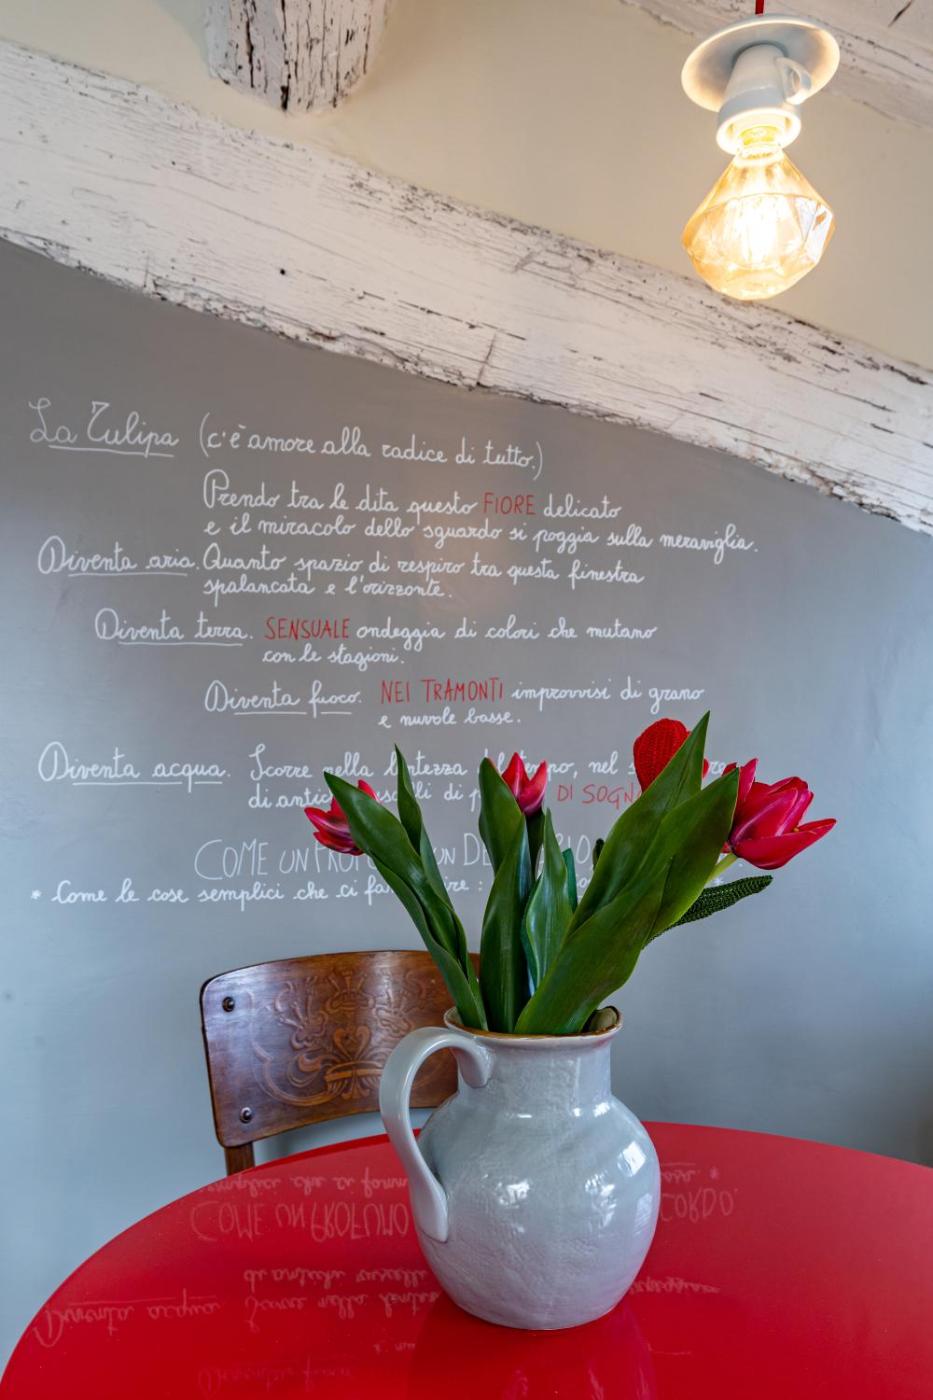 La Tulipa (c'è amore alla radice di tutto.)
Prendo tra le dita questo FIORE delicato
e il miracolo dello sguardo si poggia sulla meraviglia.
Diventa aria. Quanto spazio di respiro tra questa finestra
spalancata e l'orizzonte.
Diventa terra. SENSUALE ondeggia di colori che mutano
con le stagioni.
Diventa fuoco. NEI TRAMONTI improvvisi di grano
e nuvole basse.
Diventa acqua. Scorre nella lentezza del tempo, nel
di antichi DI SOGNO
COME UN PROFUMO
* Come le cose semplici che ci :